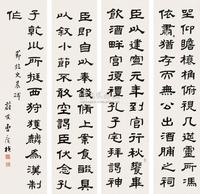 坐仰瞻榱桷俯視几筵靈所馮
依肅肅猶存而無公出酒脯之祠
臣以建寧元年到官行秋饗
飲酒畔宮復禮孔子宅拜謁神
臣即自以奉錢脩上案食醊具
以敘小節不敢空謁臣伏念孔
子乾坤所挺西狩獲麟為漢制
作
節臨史晨碑